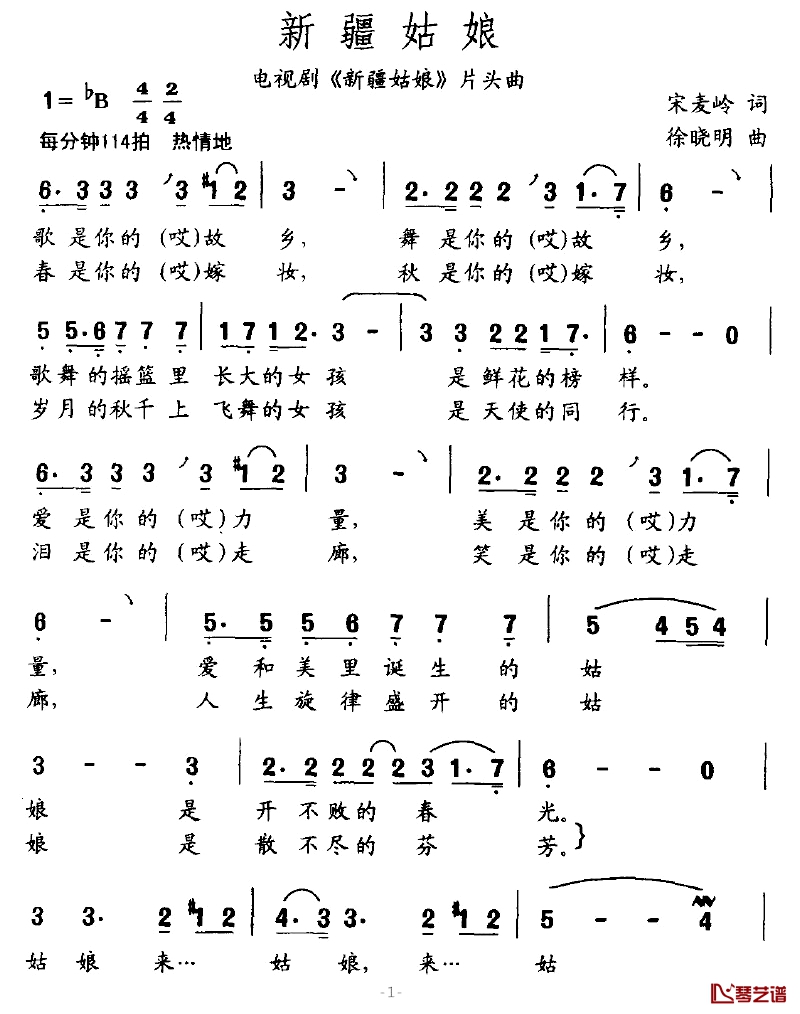 新疆姑娘
电视剧《新疆姑娘》片头曲
1=♭B 4/4 2/4
宋麦岭 词
每分钟114拍 热情地
徐晓明 曲
6. 3 3 3 3 #1 2 | 3 - | 2. 2 2 2 3 1. 7 | 6 - |
歌是你的(哎)故乡, 舞是你的(哎)故乡,
春是你的(哎)嫁妆, 秋是你的(哎)嫁妆,
5 5. 6 7 7 7 | 1 7 1 2. 3 - | 3 3 2 2 1 7. | 6 - - 0 |
歌舞的摇篮里 长大的女孩 是鲜花的榜样。
岁月的秋千上 飞舞的女孩 是天使的同行。
6. 3 3 3 3 #1 2 | 3 - | 2. 2 2 2 3 1. 7 |
爱是你的(哎)力量, 美是你的(哎)力
泪是你的(哎)走廊, 笑是你的(哎)走
6 - | 5. 5 5 6 7 7 7 | 5 4 5 4 |
量, 爱和美里诞生的姑
廊, 人生旋律盛开的姑
3 - - 3 | 2. 2 2 2 2 3 1. 7 | 6 - - 0 |
娘 是开不败的春光。
娘 是散不尽的芬芳。}
3 3. 2 #1 2 | 4. 3 3. 2 #1 2 | 5 - - 4 |
姑娘来… 姑娘,来… 姑
-1-
琴艺谱